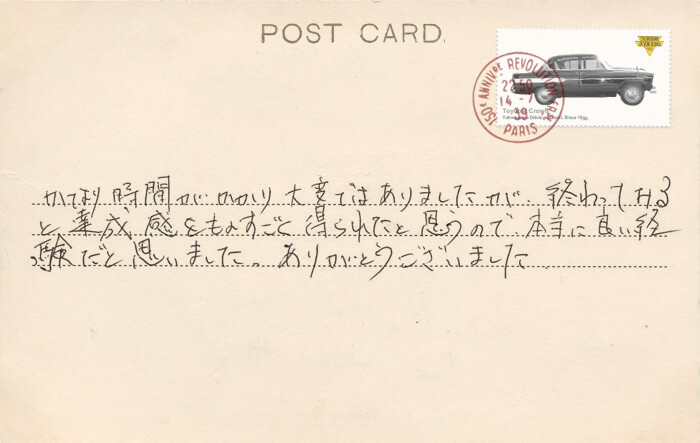 POST CARD.
150e ANNIVRE REVOLUTION FRA
22 30
14-7
39
PARIS
Toyota Crown
かなり時間がかかり大変ではありましたが、終わってみる
と達成感をものすごく得られたと思うので本当に良い経
験だと思いました。ありがとうございました